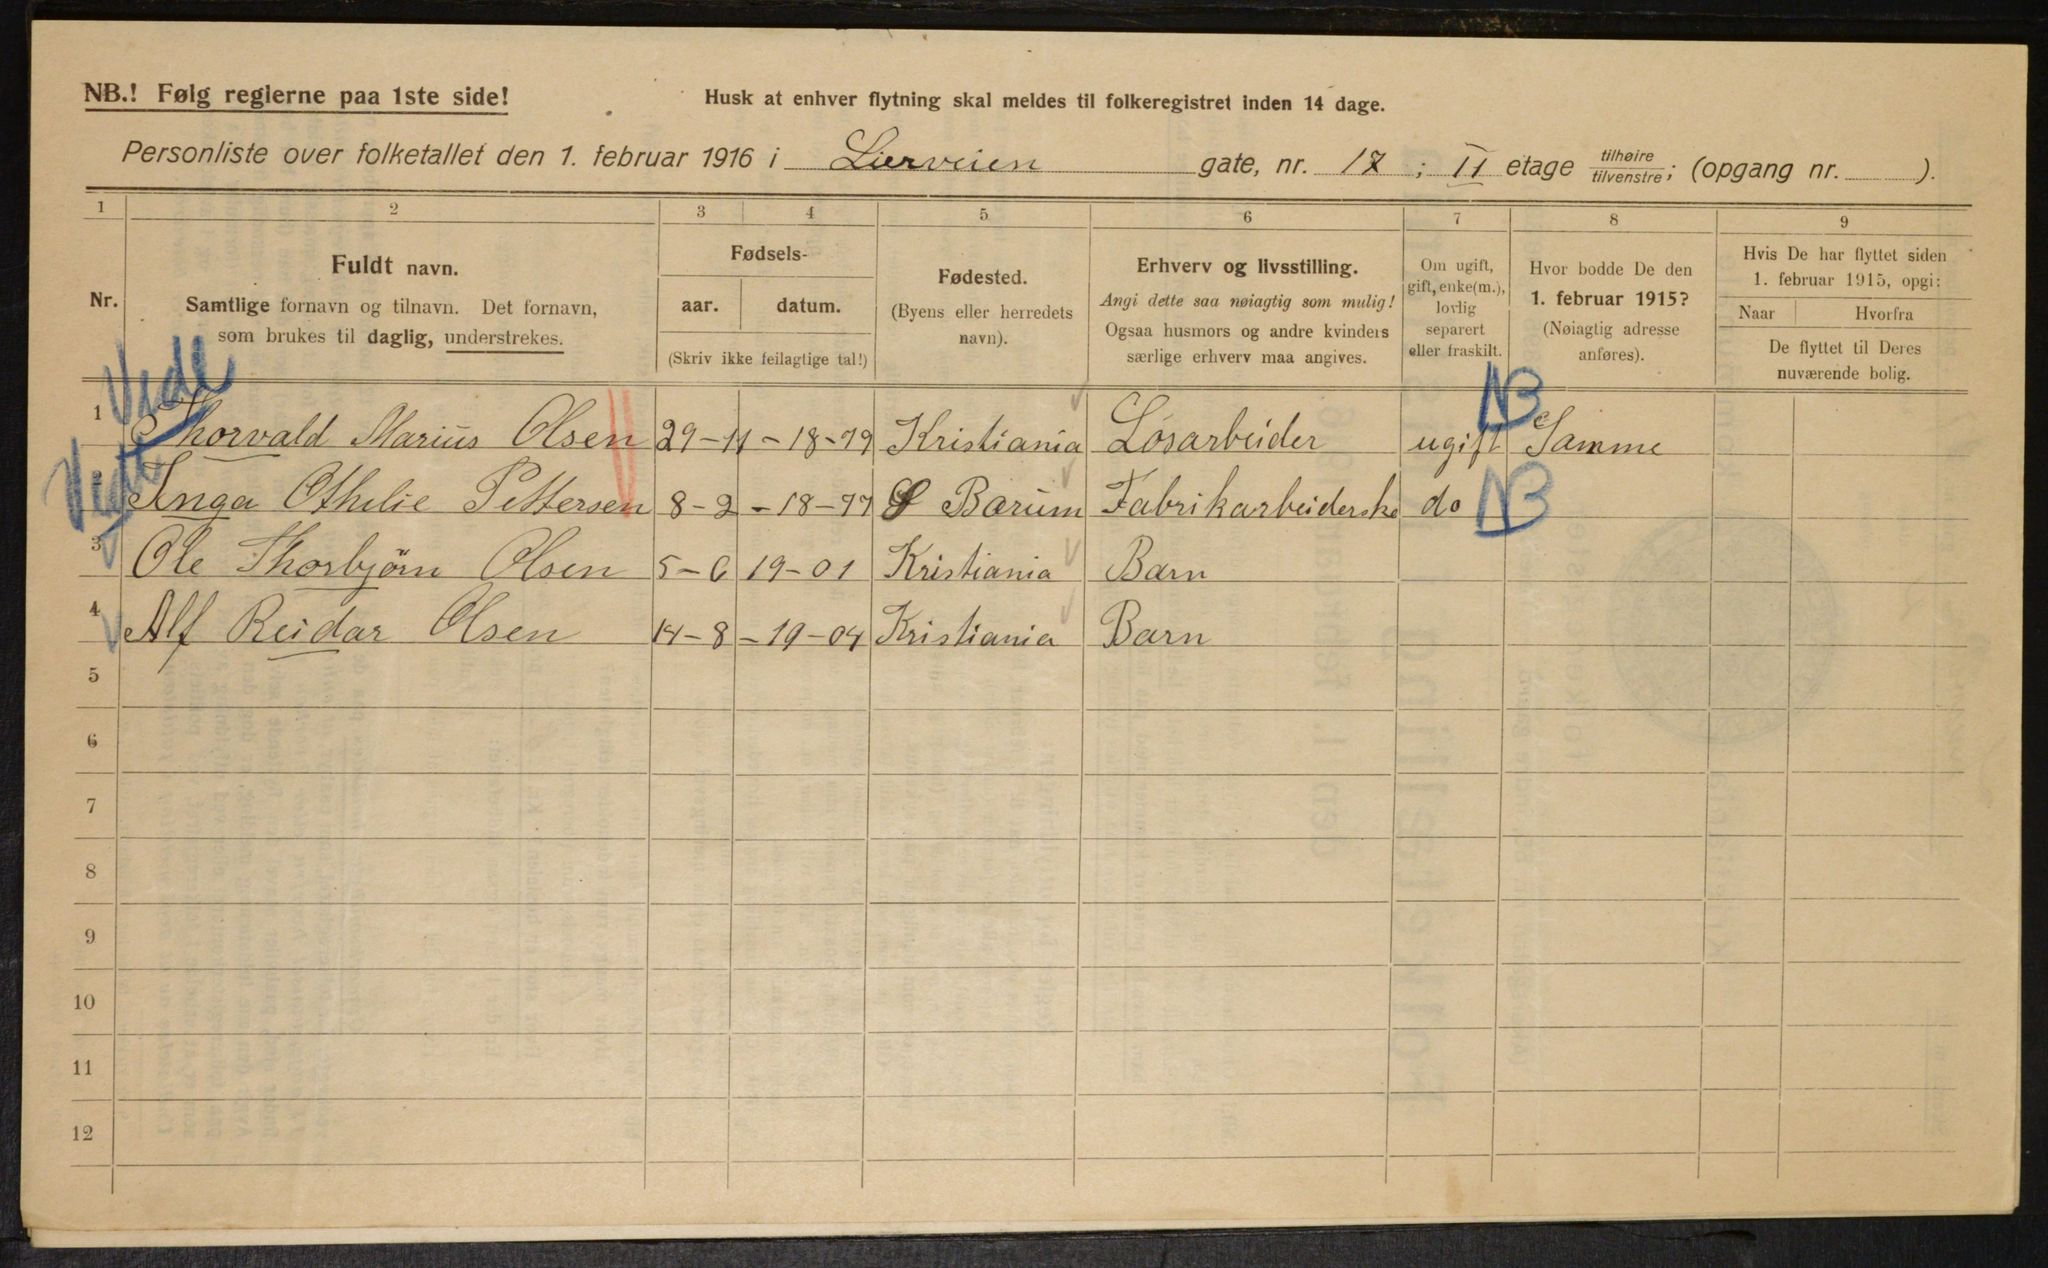 NB.! Følg reglerne paa 1ste side!
Husk at enhver flytning skal meldes til folkeregistret inden 14 dage.
Personliste over folketallet den 1. februar 1916 i Lierveien gate, nr. 12 ; II etage tilhøire tilvenstre; (opgang nr. ).
1 2 3 4 5 6 7 8 9
Nr.
Fuldt navn.
Samtlige fornavn og tilnavn. Det fornavn,
som brukes til daglig, understrekes.
Fødsels-
aar. datum.
(Skriv ikke feilagtige tal!)
Fødested.
(Byens eller herredets
navn).
Erhverv og livsstilling.
Angi dette saa nøiagtig som mulig!
Ogsaa husmors og andre kvinders
særlige erhverv maa angives.
Om ugift,
gift, enke(m.),
lovlig
separert
eller fraskilt.
Hvor bodde De den
1. februar 1915?
(Nøiagtig adresse
anføres).
Hvis De har flyttet siden
1. februar 1915, opgi:
Naar Hvorfra
De flyttet til Deres
nuværende bolig.
Vide NB
1 Thorvald Marius Olsen 29-11-18-79 Kristiania Løsarbeider ugift Samme
Vide
2 Inga Othilie Pettersen 8-2-18-77 Bærum Fabrikarbeiderske do NB
3 Ole Thorbjörn Olsen 5-6 19-01 Kristiania Barn
4 Alf Reidar Olsen 14-8-19-04 Kristiania Barn
5
6
7
8
9
10
11
12